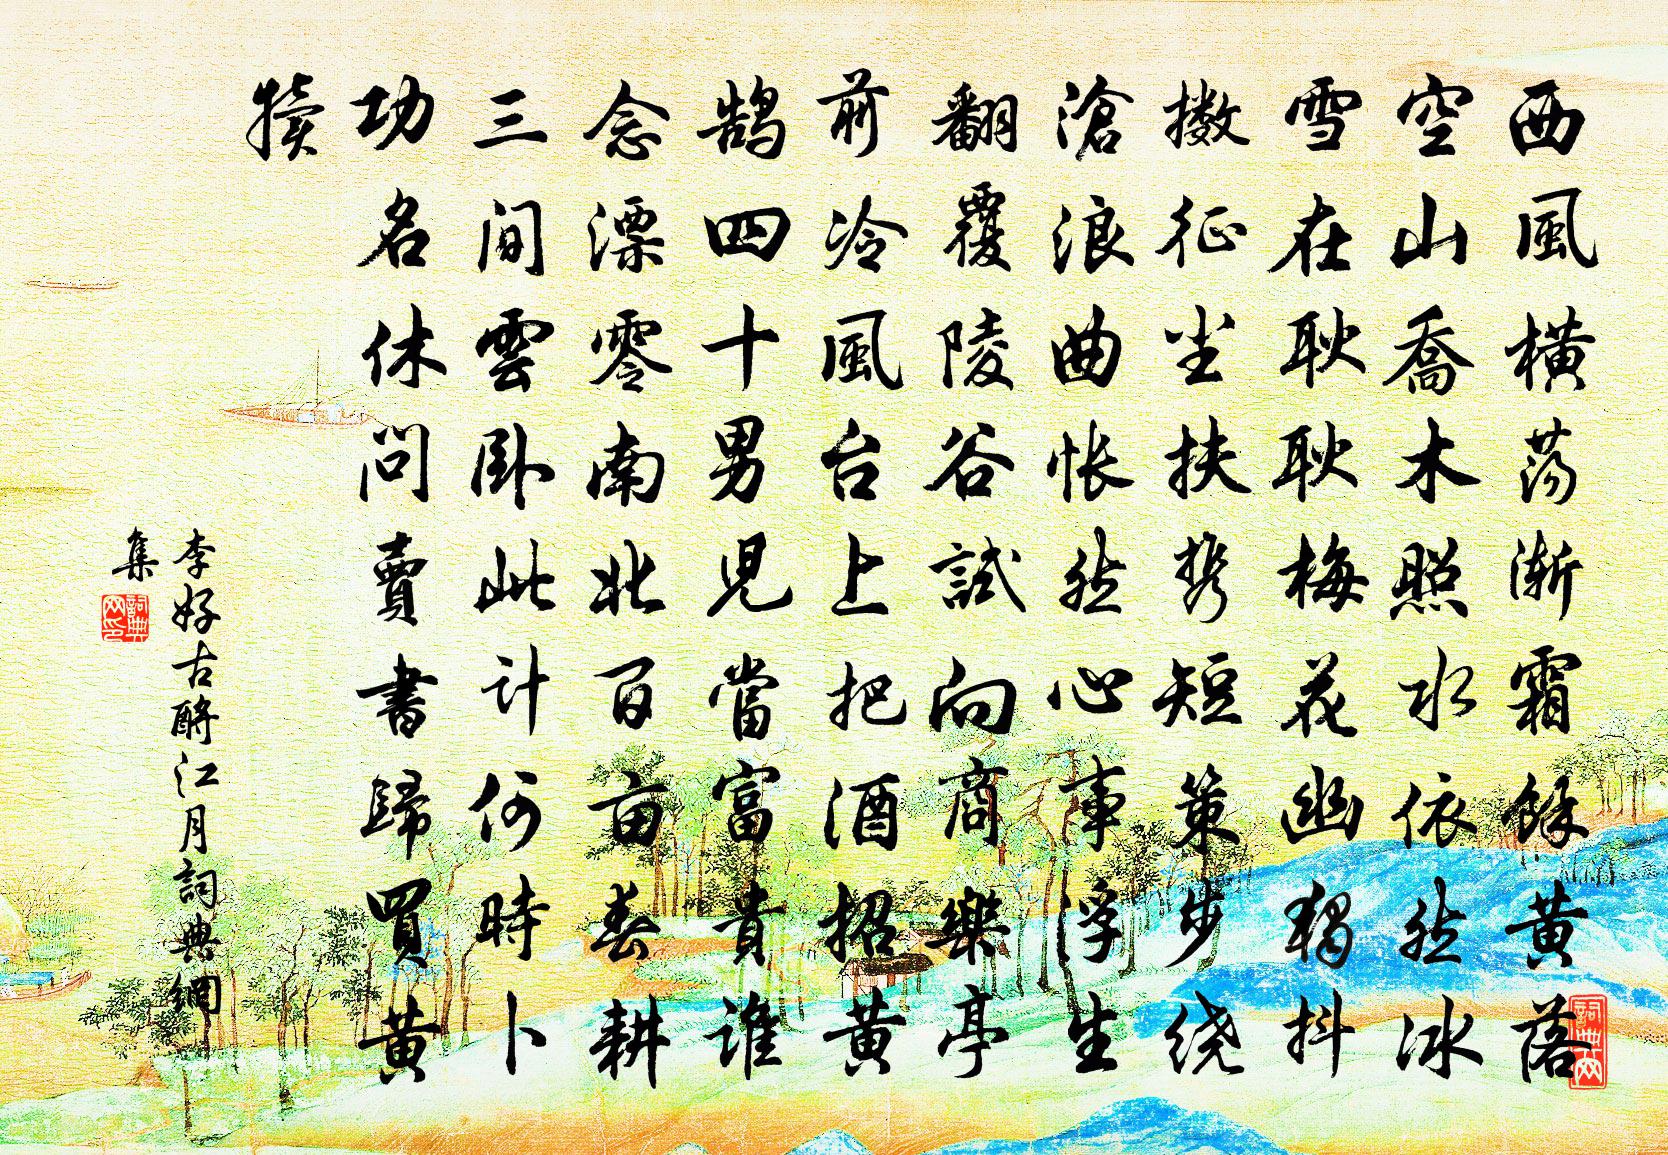 西風橫蕩漸霜餘黃落
空山喬木照水依然冰
雪在耿耿梅花幽獨抖
擻征尘扶携短策步绕
滄浪曲怅然心事浮生
翻覆陵谷試向商樂亭
前冷風台上把酒招黃
鵠四十男児當富貴誰
念漂零南北百亩春耕
三間雲卧此計何時卜
功名休問賣書歸買黃
犢
李好古酹江月詞典網
集
詞典网印
詞典网